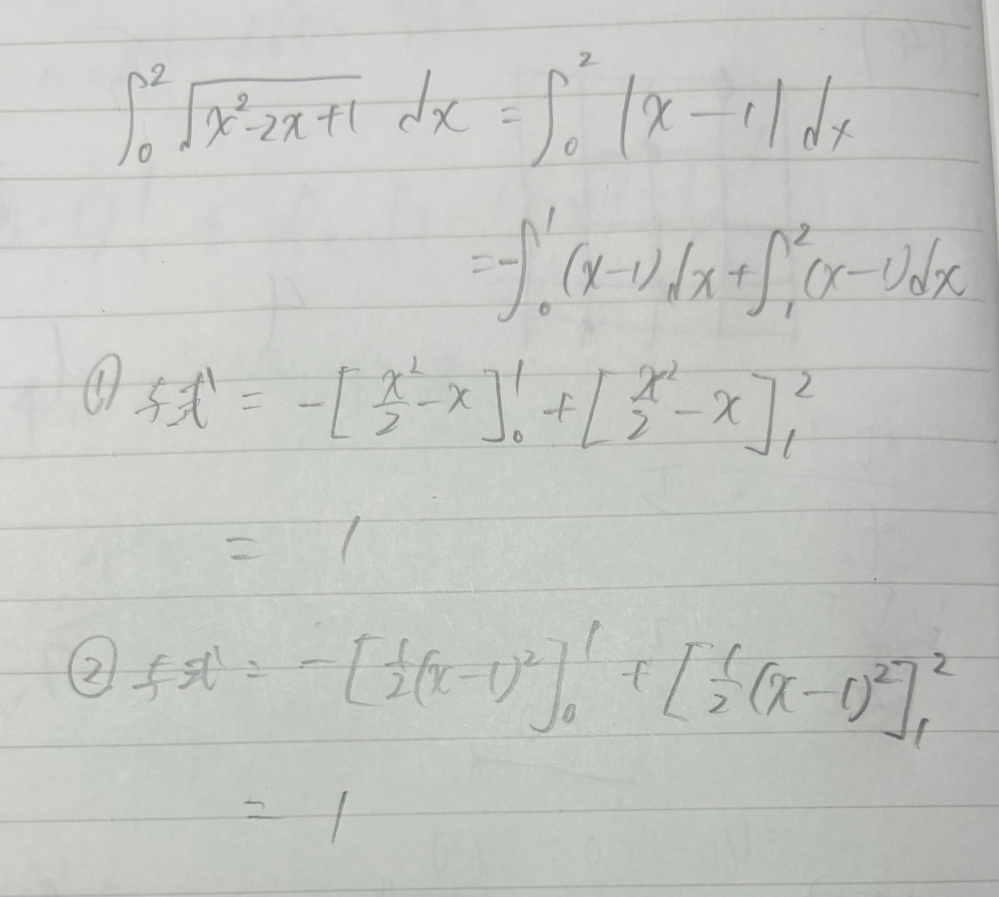 ∫₀² √(x²-2x+1) dx = ∫₀² |x-1| dx
= -∫₀¹ (x-1)dx + ∫₁² (x-1)dx
① 与式 = -[x²/2 - x]₀¹ + [x²/2 - x]₁²
= 1
② 与式 = -[1/2(x-1)²]₀¹ + [1/2(x-1)²]₁²
= 1